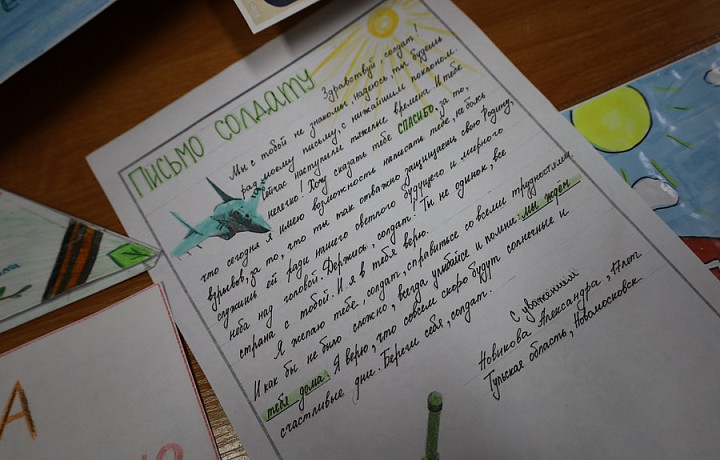 Письмо солдату
Здравствуй солдат!
Мы с тобой не знакомы, надеюсь, ты будешь
рад моему письму, с нижайшим поклоном.
Сейчас наступили тяжелые времена. И тебе
нелегко! Хочу сказать тебе спасибо, за то,
что сегодня я имею возможность написать тебе, не боясь
взрывов, за то, что ты так отважно защищаешь свою Родину,
служишь ей ради нашего светлого будущего и мирного
неба над головой. Держись, солдат! Ты не одинок, все
страна с тобой. И я в тебя верю.
Я желаю тебе, солдат, справиться со всеми трудностями.
И как бы не было сложно, всегда улыбайся и помни: мы ждем
тебя дома. Я верю, что совсем скоро будут солнечные и
счастливые дни. Береги себя, солдат.
С уважением
Новикова Александра, 17 лет
Тульская область, Новомосковск
А